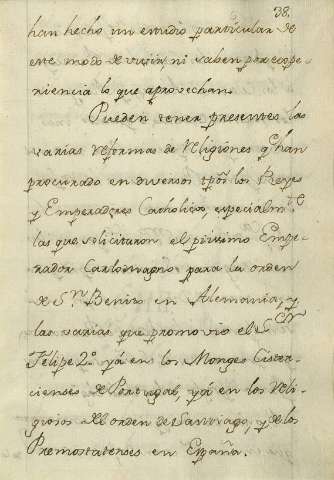 38.
han hecho un estudio particular de
este modo de vivir, ni saben por expe-
riencia lo que aprovechan.
Pueden tener presentes las
varias reformas de religiones q̃ han
procurado en diversos tpõs los Reyes
y Emperadores Catholicos, especialm.te
las que solicitaron el piissimo Empe-
rador Carlomagno para la orden
de S.n Benito en Alemania, y
las varias que promovio el S.or
Felipe 2.o yá en los Monges Cister-
cienses de Portugal, yá en los Reli-
giosos del orden de Santiago, y de los
Premostatenses en España.